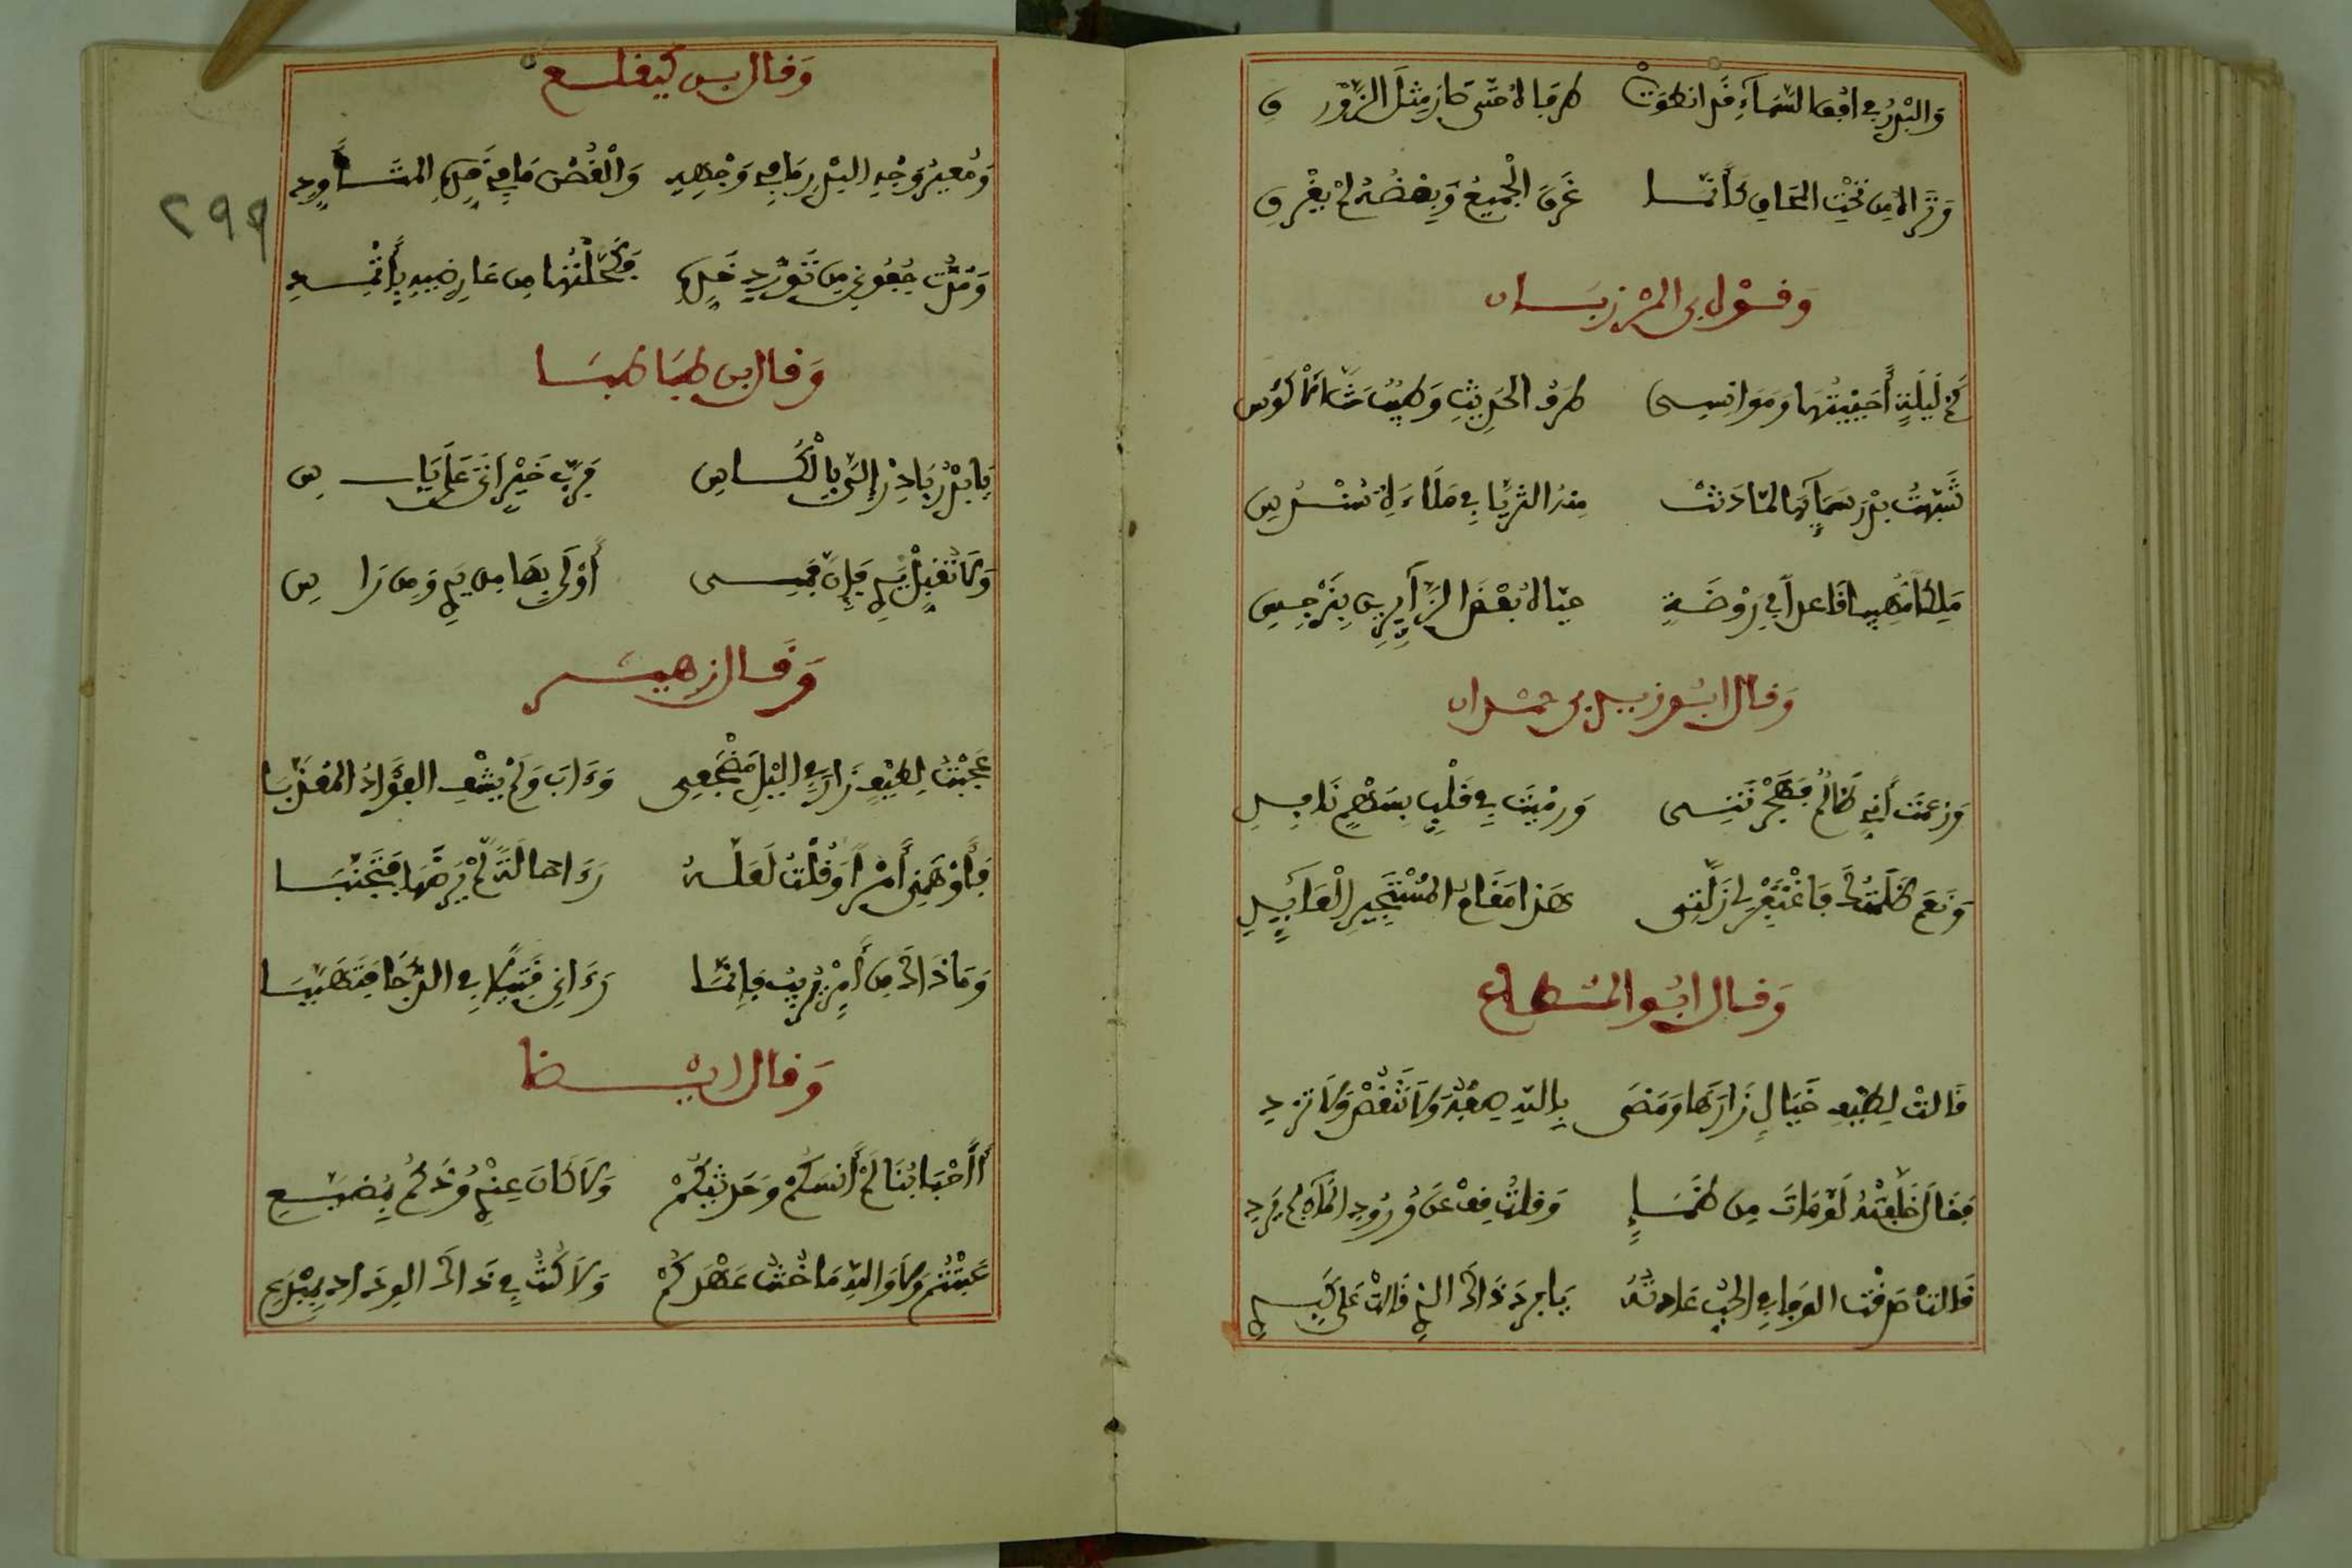 وَالبَدْرُ فِي افْقِ السَّمَآءِ قَدِ انطَوَتْ طَرَفَاهُ حَتَّى صَارَ مِثْلَ الزَّوْرَ قِ
وَتَرَاهُ مِن تَحْتِ المَحَاقِ كَأَنَّمَا غَرِقَ الْجَمِيعُ وَبَعْضُهُ لَمْ يَغْرَقِ
وَقَوْل بن المَرْزبَان
كَمْ لَيْلَةٍ أَحْيَيْتُهَا وَمُوَانِسِى طَرَفُ الحَدِيثِ وَطِيبُ حَثِّ الأَكْؤُسِ
شَبَّهْتُ بَدْرَ سَمَآئِهَا لَمَّا دَنَتْ مِنْهُ الثُّرَيَّا فِي مَلَاءَةِ سُنْدُسِ
مَلِكًا مَهِيبًا قَاعِدًا فِي رَوْضَةٍ حَيَّاهُ بَعْضُ الزَّآئِرِينَ بِنَرْجِسِ
وَقَال ابُو زيد بن حمْدان
وَزَعَمْتَ أَنِّي ظَالِمٌ فَهَجَرْتَنِى وَرَمَيْتَ فِي قَلْبِي بِسَهْمٍ نَافِذِ
وَنَعَمْ ظَلَمْتُكَ فَاغْتَفِرْ لِي زَلَّتِى هَذَا مَقَامُ المُسْتَجِيرِ الْعَآئِذِ
وَقَال ابُو المُطاع
قَالَتْ لِطَيْفِ خَيَالٍ زَارَهَا وَمَضَى بِاللهِ صِفْهُ وَلَا تَنْقُصْ وَلَا تَزِدِ
فَقَالَ خَلَّفْتُهُ لَوْ مَاتَ مِن ظَمَإٍ وَقُلْتُ قِفْ عَن وُرُودِ المَآءِ لَمْ يَرِدِ
قَالَتْ صَدَقْتَ الوَفَا فِي الحُبِّ عَادَتُهُ يَا بَرْدَ ذَاكَ الذِي قَالَتْ عَلَى كَبِدِي
وَقَال بن كَيغلغ
وَمُعِيرُ وَجْهِ البَدْرِ مَا فِي وَجْهِهِ وَالْغُصْنِ مَا فِي قَدِّهِ المُتَأَوِّدِ
وَمُدَّتْ جُفُونِي مِن تَوَرُّدِ خَدِّهِ وَكَحَّلْتُهَا مِن عَارِضَيْهِ بِأَثْمُدِ
وَقَال ابن طَبَاطبَا
يَا بَدْرُ بَادِرْ إِلَيَّ بِالْكَاسِ فَرُبَّ خَيْرٍ أَتَى عَلَى يَاسِ
وَلَا تُقَبِّلْ يَدِي فَإِنَّ فَمِى أَوْلَى بِهَا مِن يَدِي وَمِن رَاسِ
وَقَال زهير
عَجِبْتُ لِطَيْفٍ زَارَ فِي اللَّيْلِ مَضْجَعِى وَءَابَ وَلَمْ يَشْفِ الفُؤَادَ المُعَذَّبَا
فَأَوْهَمَنِي أَمْرًا وَقُلْتُ لَعَلَّهُ رَءَا حَالَةً لَمْ يَرْضَهَا فَتَجَنَّبَا
وَمَا ذَاكَ مِن أَمْرٍ يُرِيبُ وَإِنَّمَا رَءَانِي قَتِيلًا فِي الدُّجَا فَتَهَيَّبَا
وَقَال ايْضا
أَأَحْبَابَنَا لَمْ أَنْسَكُمْ وَحَدِيثَكُمْ وَلَا كَانَ عِنْدِي وُدُّكُمْ بِمُضَيَّعِ
عَتَبْتُمْ وَلَا وَاللهِ مَا خُنْتُ عَهْدَكُمْ وَلَا كُنْتُ فِي ذَاكَ الوِدَادِ بِمُدَّعِ
٢٩٩